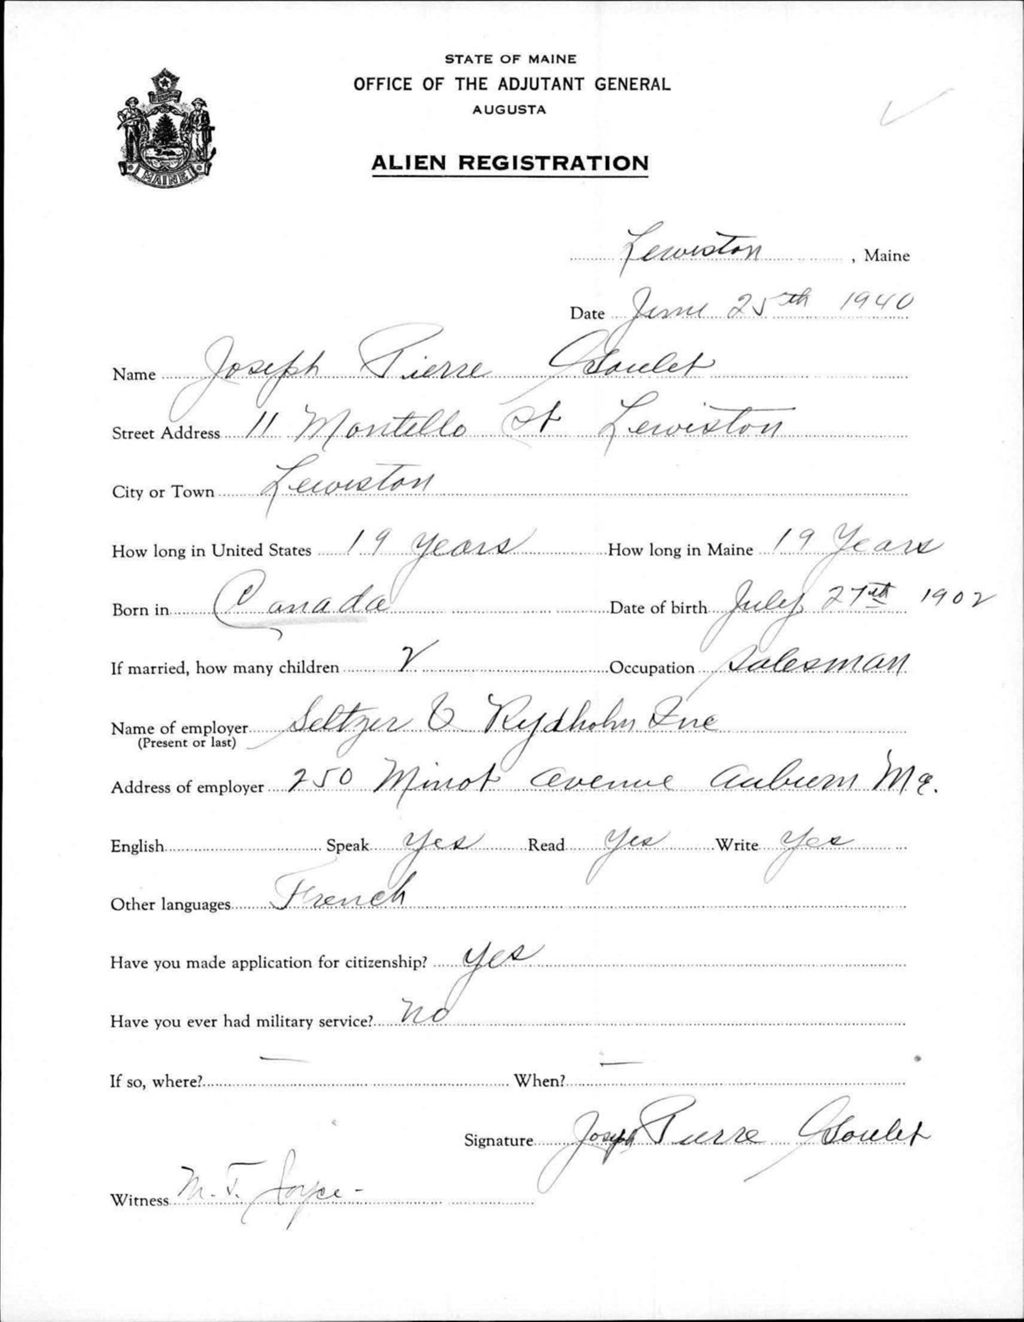 STATE OF MAINE
OFFICE OF THE ADJUTANT GENERAL
AUGUSTA
MAINE
ALIEN REGISTRATION
Lewiston, Maine
Date June 25th 1940
Name Joseph Pierre Goulet
Street Address 11 Montello St Lewiston
City or Town Lewiston
How long in United States 19 Years How long in Maine 19 Years
Born in Canada Date of birth July 27th 1902
If married, how many children 2 Occupation Salesman
Name of employer Seltzer & Rydholm Inc
(Present or last)
Address of employer 250 Minot Avenue Auburn Me.
English Speak Yes Read Yes Write Yes
Other languages French
Have you made application for citizenship? Yes
Have you ever had military service? No
If so, where? — When? —
Signature Joseph Pierre Goulet
Witness M. T. Joyce -